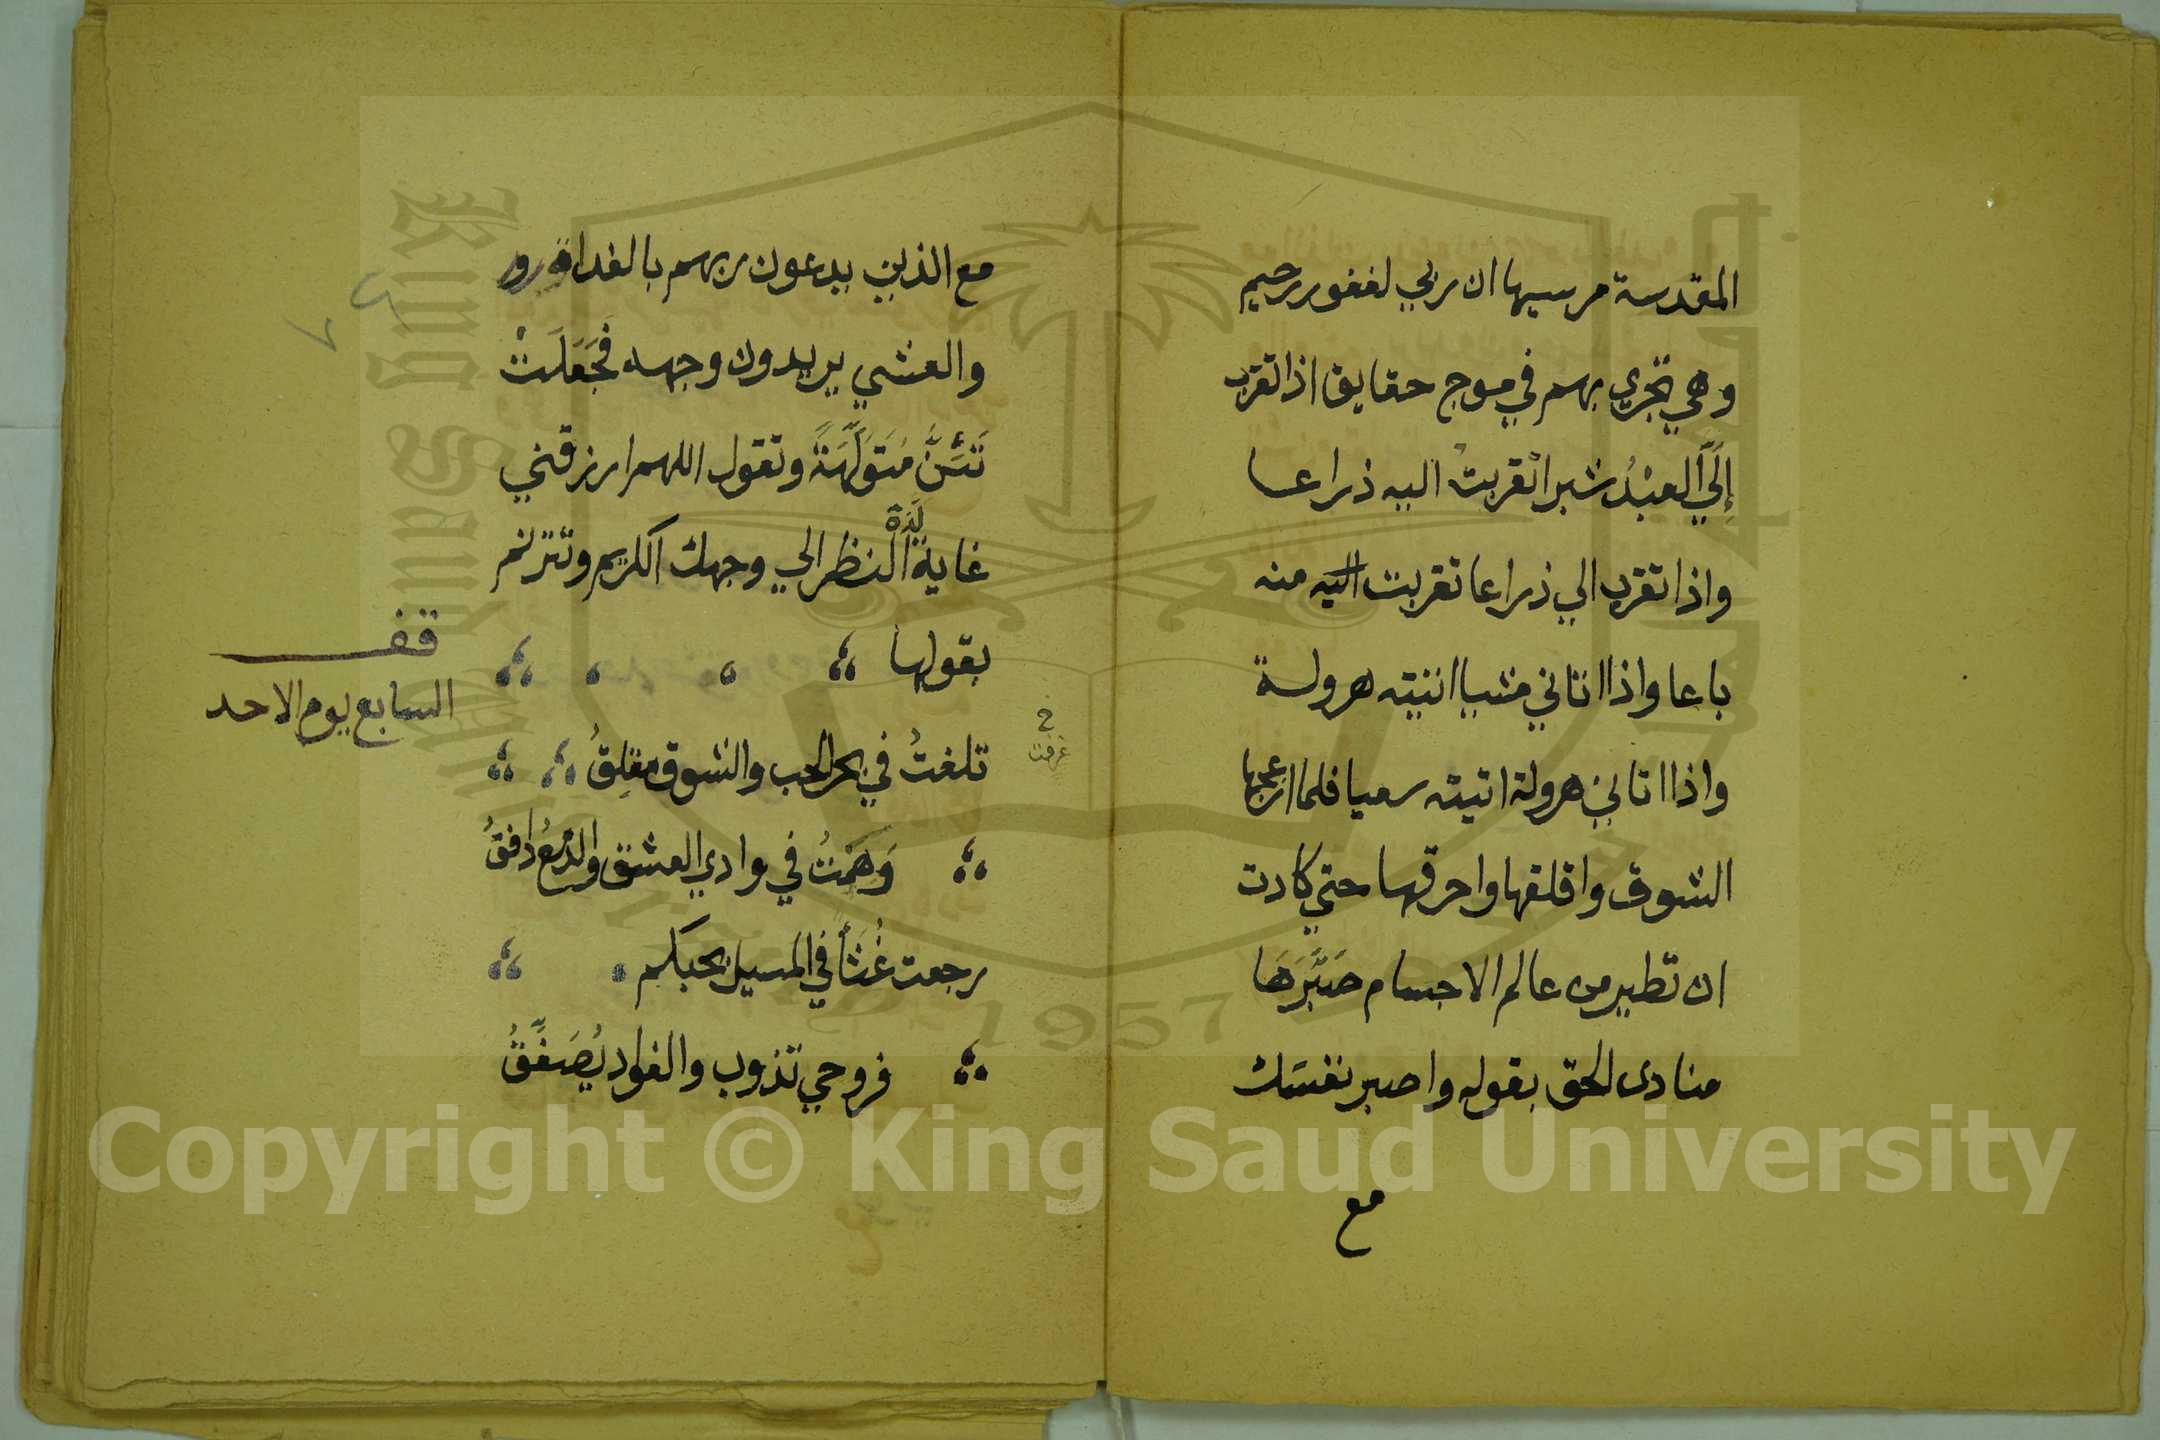 المقدسة مرسيها ان ربي لغفور رحيم
وهي تجري بهم في موج حقايق اذا تقرب
إِلَيَّ العبْدُ شبرا تقربتْ اليه ذراعا
واذا تقرب الي ذراعا تقربت اليه منه
باعا واذا اتاني مشيا اتيته هرولة
واذا اتاني هرولة اتيته سعيا فلما ازعجها
الشوق واقلقها واحرقها حتي كادت
ان تطير من عالم الاجسام صَبَّرَهَا
منادى الحق بقوله واصبر نفسَك
مع
مع الذين يدعون ربهم بالغداة
والعشي يريدون وجهه فَجَعَلَتْ
تَئِنُّ مُتَوَلِّهَةً وتقول اللهم ارزقني
لَذة
غاية النظر الي وجهك الكريم وتترنم
بقولها
تلغتُ في بحر الحب والشوق مقلِقُ
وَهَمْتُ في وادي العشق والدَّمعُ دَافقُ
رجعت غُثَاً في المسيل بحبكم
فروحي تذوب والفواد يُصَفِّقُ
غرقت
قف
السابع يوم الاحد
Copyright © King Saud University
King Saud University
1957